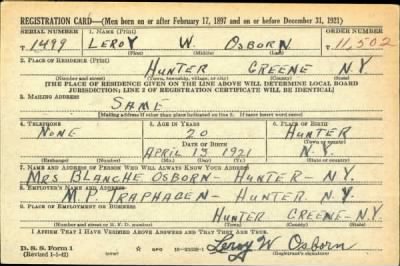 REGISTRATION CARD—(Men born on or after February 17, 1897 and on or before December 31, 1921)
SERIAL NUMBER 1. NAME (Print) ORDER NUMBER
T 1499 LEROY W. OSBORN T 11,502
(First) (Middle) (Last)
2. PLACE OF RESIDENCE (Print)
HUNTER GREENE N.Y.
(Number and street) (Town, township, village, or city) (County) (State)
[THE PLACE OF RESIDENCE GIVEN ON THE LINE ABOVE WILL DETERMINE LOCAL BOARD
JURISDICTION; LINE 2 OF REGISTRATION CERTIFICATE WILL BE IDENTICAL]
3. MAILING ADDRESS
SAME
[Mailing address if other than place indicated on line 2. If same insert word same]
4. TELEPHONE 5. AGE IN YEARS 6. PLACE OF BIRTH
NONE 20 HUNTER
DATE OF BIRTH (Town or county)
APRIL 13 1921 N.Y.
(Exchange) (Number) (Mo.) (Day) (Yr.) (State or country)
7. NAME AND ADDRESS OF PERSON WHO WILL ALWAYS KNOW YOUR ADDRESS
MRS BLANCHE OSBORN - HUNTER - N.Y.
8. EMPLOYER'S NAME AND ADDRESS
M.P. TRAPHAGEN - HUNTER N.Y.
9. PLACE OF EMPLOYMENT OR BUSINESS
HUNTER GREENE - N.Y.
(Number and street or R. F. D. number) (Town) (County) (State)
I AFFIRM THAT I HAVE VERIFIED ABOVE ANSWERS AND THAT THEY ARE TRUE.
D. S. S. Form 1 GPO
(Revised 1-1-42) Leroy W Osborn